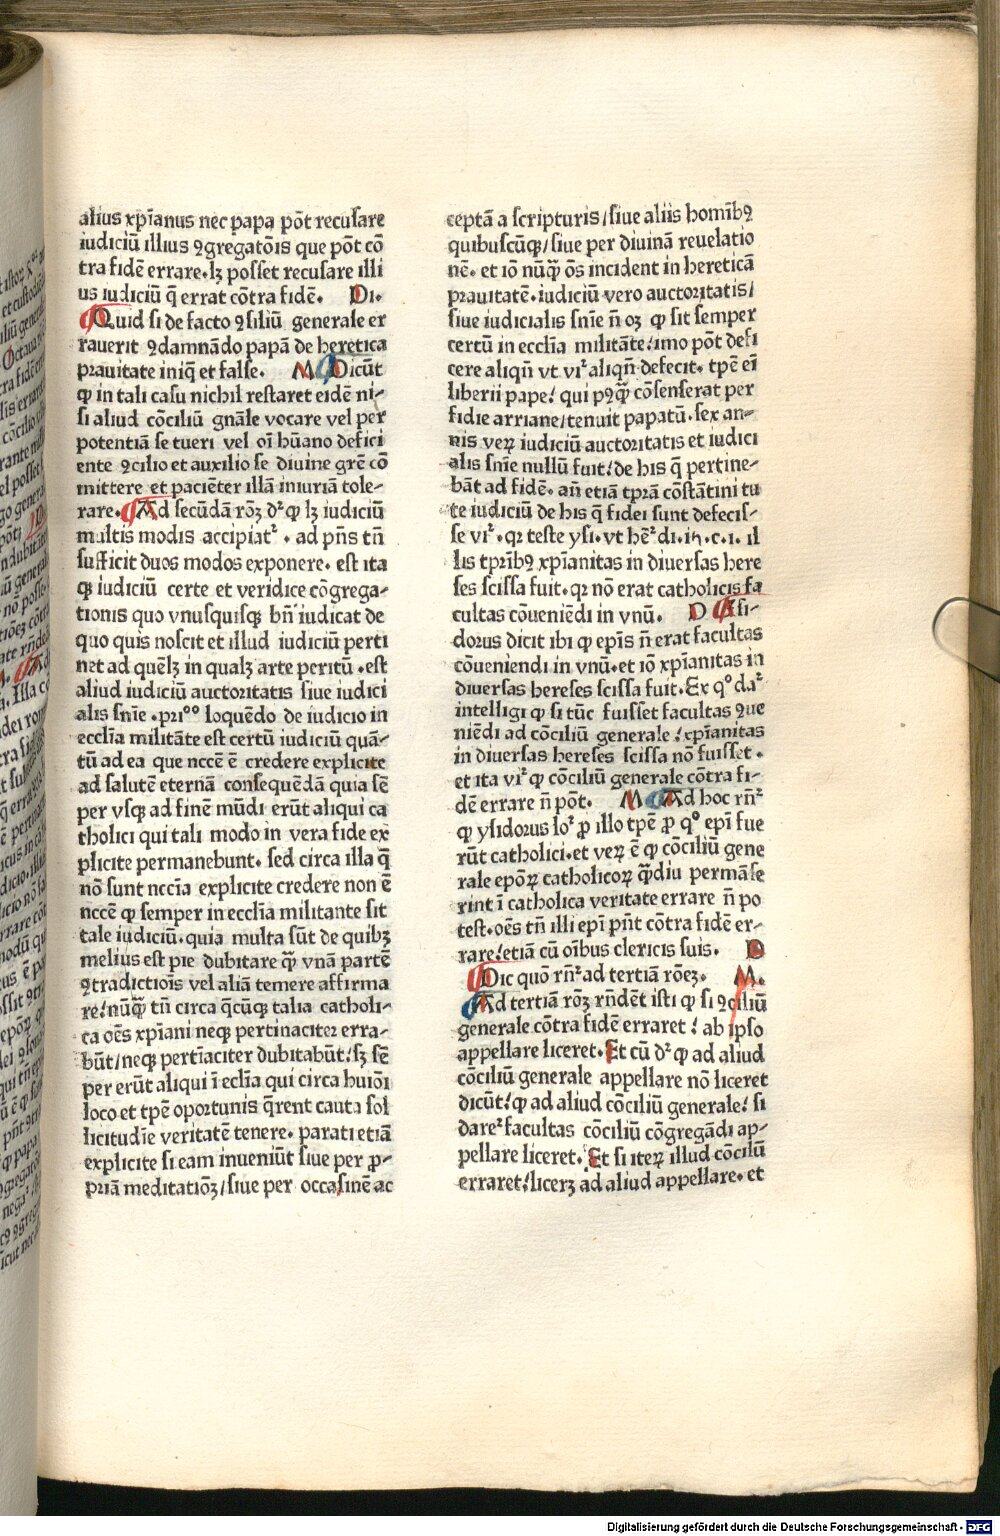 alius xp̄ianus nec papa pōt recusare
iudiciū illius ꝯgregatōis que pōt cō
tra fidē errare. lꝫ posset recusare illi
us iudiciū q̄ errat cōtra fidē. Di.
Quid si de facto ꝯsiliū generale er
rauerit ꝯdamnādo papā de heretica
prauitate iniq̄ et false. M Dicūt
ꝙ in tali casu nichil restaret eidē ni-
si aliud cōciliū gnāle vocare vel per
potentiā se tueri vel oī hūano defici
ente ꝯcilio et auxilio se diuine grē cō
mittere et paciēter illā iniuriā tole-
rare. Ad secūdā rōꝫ dꝛ ꝙ lꝫ iudiciū
multis modis accipiatꝛ . ad pn̄s tn̄
sufficit duos modos exponere. est ita
qꝫ iudiciū certe et veridice cōgrega-
tionis quo vnusquisqꝫ bn̄ iudicat de
quo quis noscit et illud iudiciū perti
net ad quēlꝫ in qualꝫ arte peritū .est
aliud iudiciū auctoritatis siue iudici
alis sn̄ie .pri⁰⁰ loquēdo de iudicio in
ecclīa militāte est certū iudiciū quā-
tū ad ea que nccē ē credere explicite
ad salutē eternā consequēdā quia sē
per vsqꝫ ad finē mūdi erūt aliqui ca
tholici qui tali modo in vera fide ex
plicite permanebunt. sed circa illa q̄
nō sunt nccīa explicite credere non ē
nccē ꝙ semper in ecclīa militante sit
tale iudiciū. quia multa sūt de quibꝫ
melius est pie dubitare qꝙ vnā partē
ꝯtradictiōis vel aliā temere affirma
re! nūqꝙ tn̄ circa q̄cūqꝫ talia catholi-
ca oēs xp̄iani neqꝫ pertinaciter erra-
būt/neqꝫ pertīaciter dubitabūt/sꝫ sē
per erūt aliqui ī ecclīa qui circa huiōi
loco et tpē oportunis q̄rent cauta sol
licitudīe veritatē tenere. parati etiā
explicite si eam inueniūt siue per ꝓ-
priā meditatiōꝫ/siue per occasinē ac
ceptā a scripturis/siue aliis homībꝫ
quibuscūqꝫ/siue per diuinā reuelatio
nē. et iō nūqꝙ ōs incident in hereticā
prauitatē. iudiciū vero auctoritatis/
siue iudicialis sn̄ie n̄ oꝫ ꝙ sit semper
certū in ecclīa militāte! imo pōt defi
cere aliqn̄ vt viꝛ aliqn̄ defecit. tpē eī
liberii pape! qui pꝯqꝙ cōsenserat per
fidie arriane/tenuit papatū. sex an-
nis veꝝ iudiciū auctoritatis et iudici
alis sn̄ie nullū fuit! de his q̄ pertine-
bāt ad fidē. an̄ etiā tp̄rā cōstātini tu
te iudiciū de his q̄ fidei sunt defecis-
se viꝛ. qꝛ teste ysi. vt hēꝛ di. .c. i. il
lis tp̄ribꝯ xp̄ianitas in diuersas here
ses scissa fuit. qꝛ nō erat catholicis fa
cultas cōueniēdi in vnū. D Isi-
dorus dicit ibi ꝙ epīs n̄ erat facultas
cōueniendi in vnū. et iō xp̄ianitas in
diuersas hereses scissa fuit. Ex q° daꝛ
intelligi ꝙ si tūc fuisset facultas ꝯue
niēdi ad cōciliū generale! xp̄ianitas
in diuersas hereses scissa nō fuisset .
et ita viꝛ ꝙ cōciliū generale cōtra fi-
dē errare n̄ pōt. M Ad hoc rn̄ꝛ
ꝙ ysidorus loꝛ ꝓ illo tpē ꝓ q° epī fue
rūt catholici. et veꝝ ē ꝙ cōciliū gene
rale epōꝝ catholicoꝝ qꝙdiu permāse
rint ī catholica veritate errare n̄ po
test. oēs tn̄ illi epī pn̄t cōtra fidē er-
rare! etiā cū oībus clericis suis. D
Dic quō rn̄ꝛ ad tertiā rōeꝫ. M.
Ad tertiā rōꝫ rn̄dēt isti ꝙ si ꝯciliū
generale cōtra fidē erraret! ab ipso
appellare liceret. Et cū dꝛ ꝙ ad aliud
cōciliū generale appellare nō liceret
dicūt! ꝙ ad aliud cōciliū generale! si
dareꝛ facultas cōciliū cōgregādi ap-
pellare liceret. Et si iteꝝ illud cōciliū
erraret! licerꝫ ad aliud appellare. et
Digitalisierung gefördert durch die Deutsche Forschungsgemeinschaft - DFG